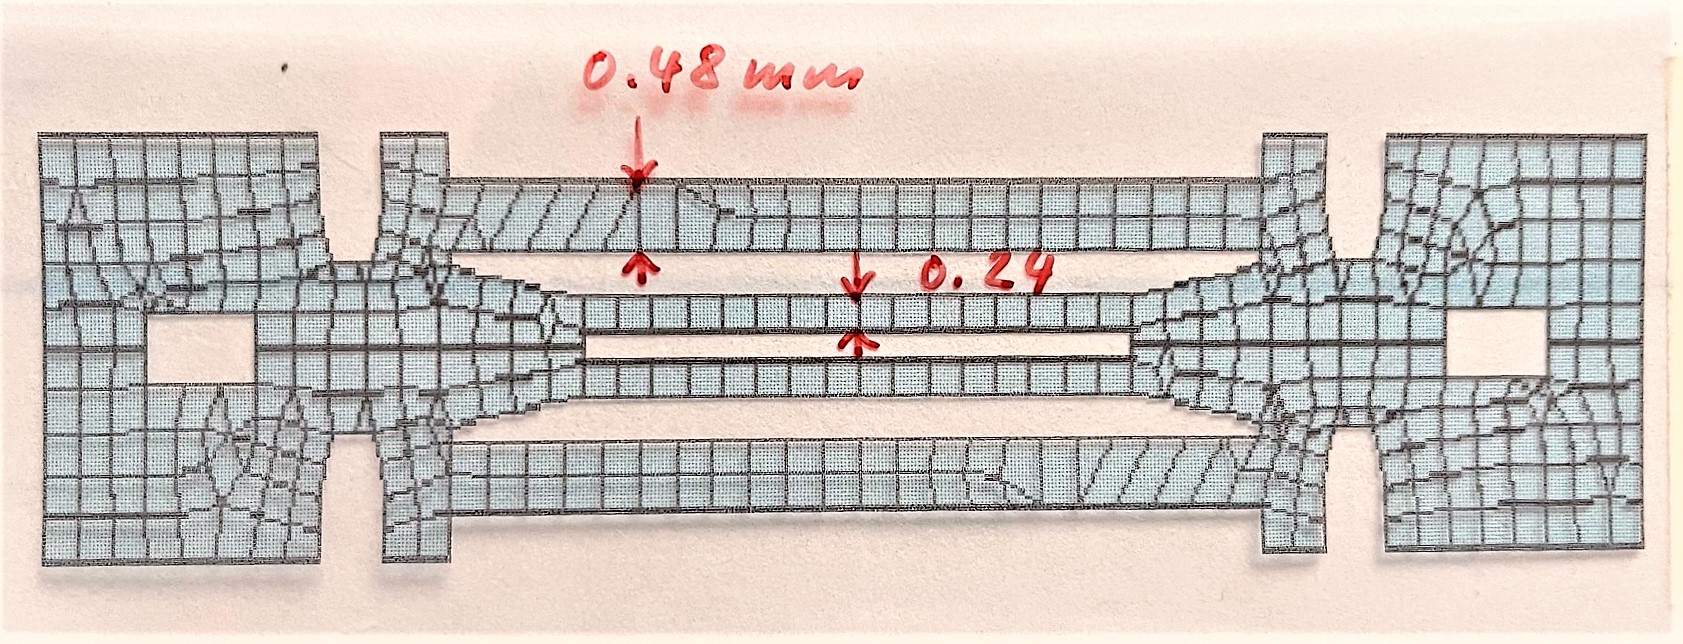 0.48 mm
0.24